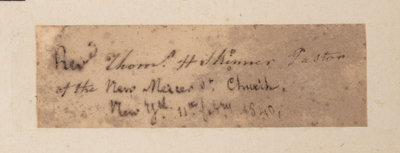 Revd Thoms H Skinner Pastor
of the New Mercer St Church.
New York 11th 1840.